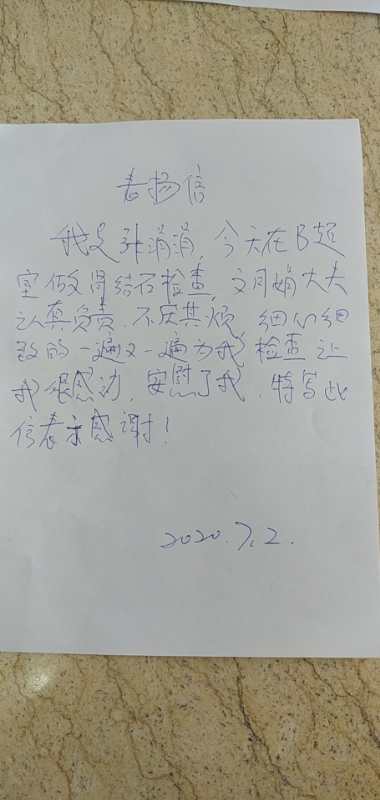 表扬信
我是孙涓涓,今天在B超
室做肾结石检查,文月娟大夫
认真负责,不厌其烦,细心细
致的一遍又一遍为我检查让
我很感动,安慰了我,特写此
信表示感谢!
2020.7.2.